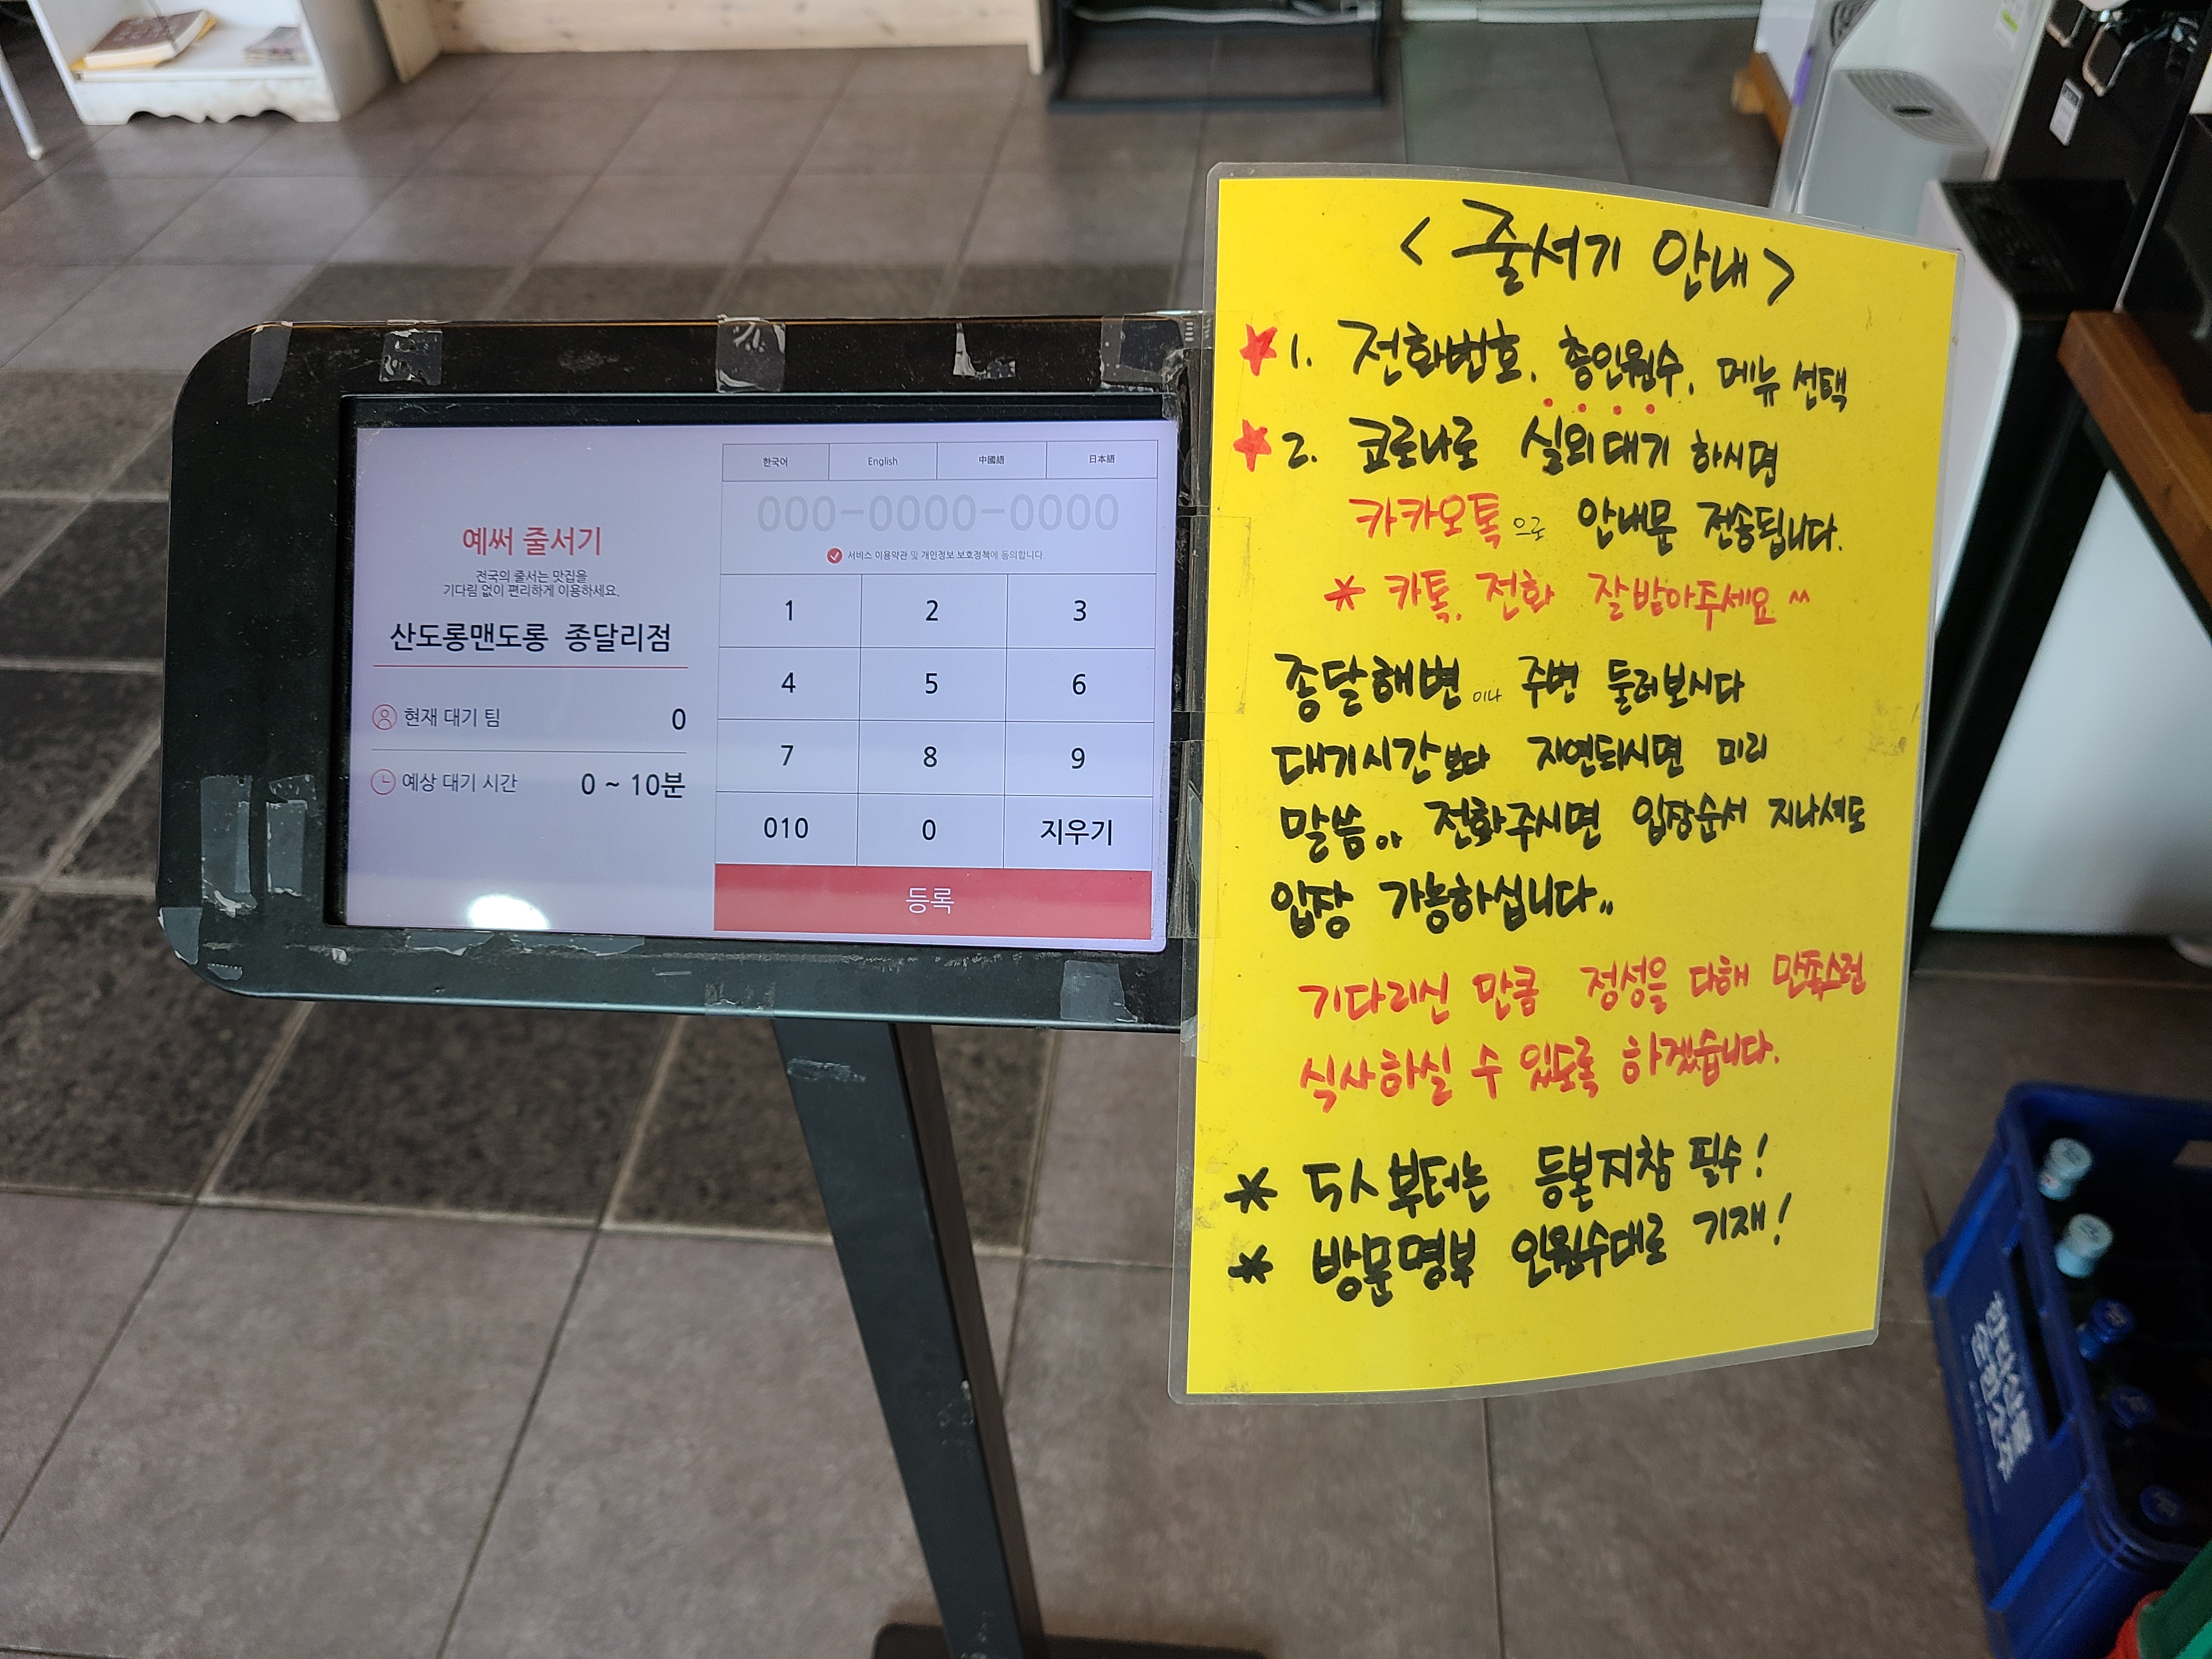 예써 줄서기
전국의 줄서는 맛집을
기다림 없이 편리하게 이용하세요.
산도롱맨도롱 종달리점
현재 대기 팀 0
예상 대기 시간 0 ~ 10분
한국어 English 中國語 日本語
000-0000-0000
서비스 이용약관 및 개인정보 보호정책에 동의합니다.
1 2 3
4 5 6
7 8 9
010 0 지우기
등록
< 줄서기 안내 >
★1. 전화번호, 총인원수, 메뉴 선택
★2. 코로나로 실외대기 하시면
카카오톡으로 안내문 전송됩니다.
* 카톡, 전화 잘 받아주세요 ^^
종달해변이나 주변 둘러보시다
대기시간보다 지연되시면 미리
말씀.. 전화주시면 입장순서 지나셔도
입장 가능하십니다..
기다리신 만큼 정성을 다해 만족스런
식사하실 수 있도록 하겠습니다.
* 5人부터는 등본지참 필수!
* 방문명부 인원수대로 기재!
한라산물